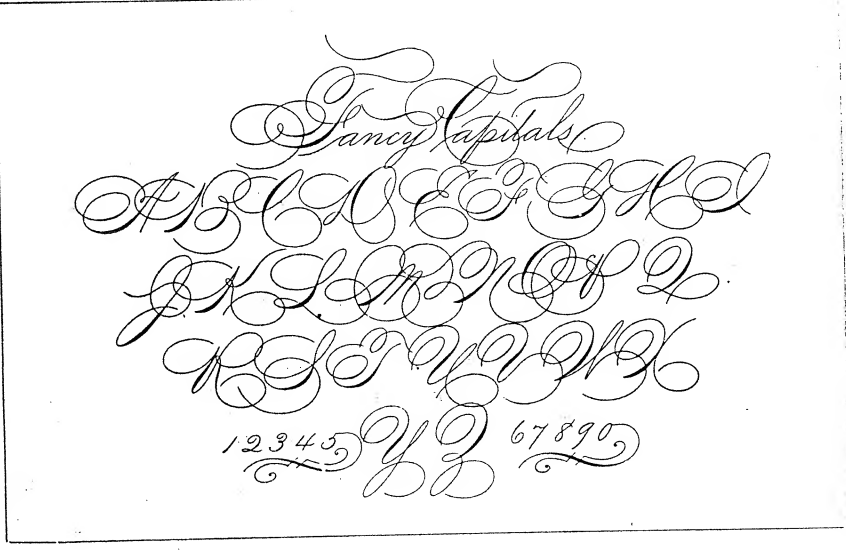 Fancy Capitals
A B C D E F G H I
J K L M N O P Q
R S T U V W X
1 2 3 4 5 Y Z 6 7 8 9 0